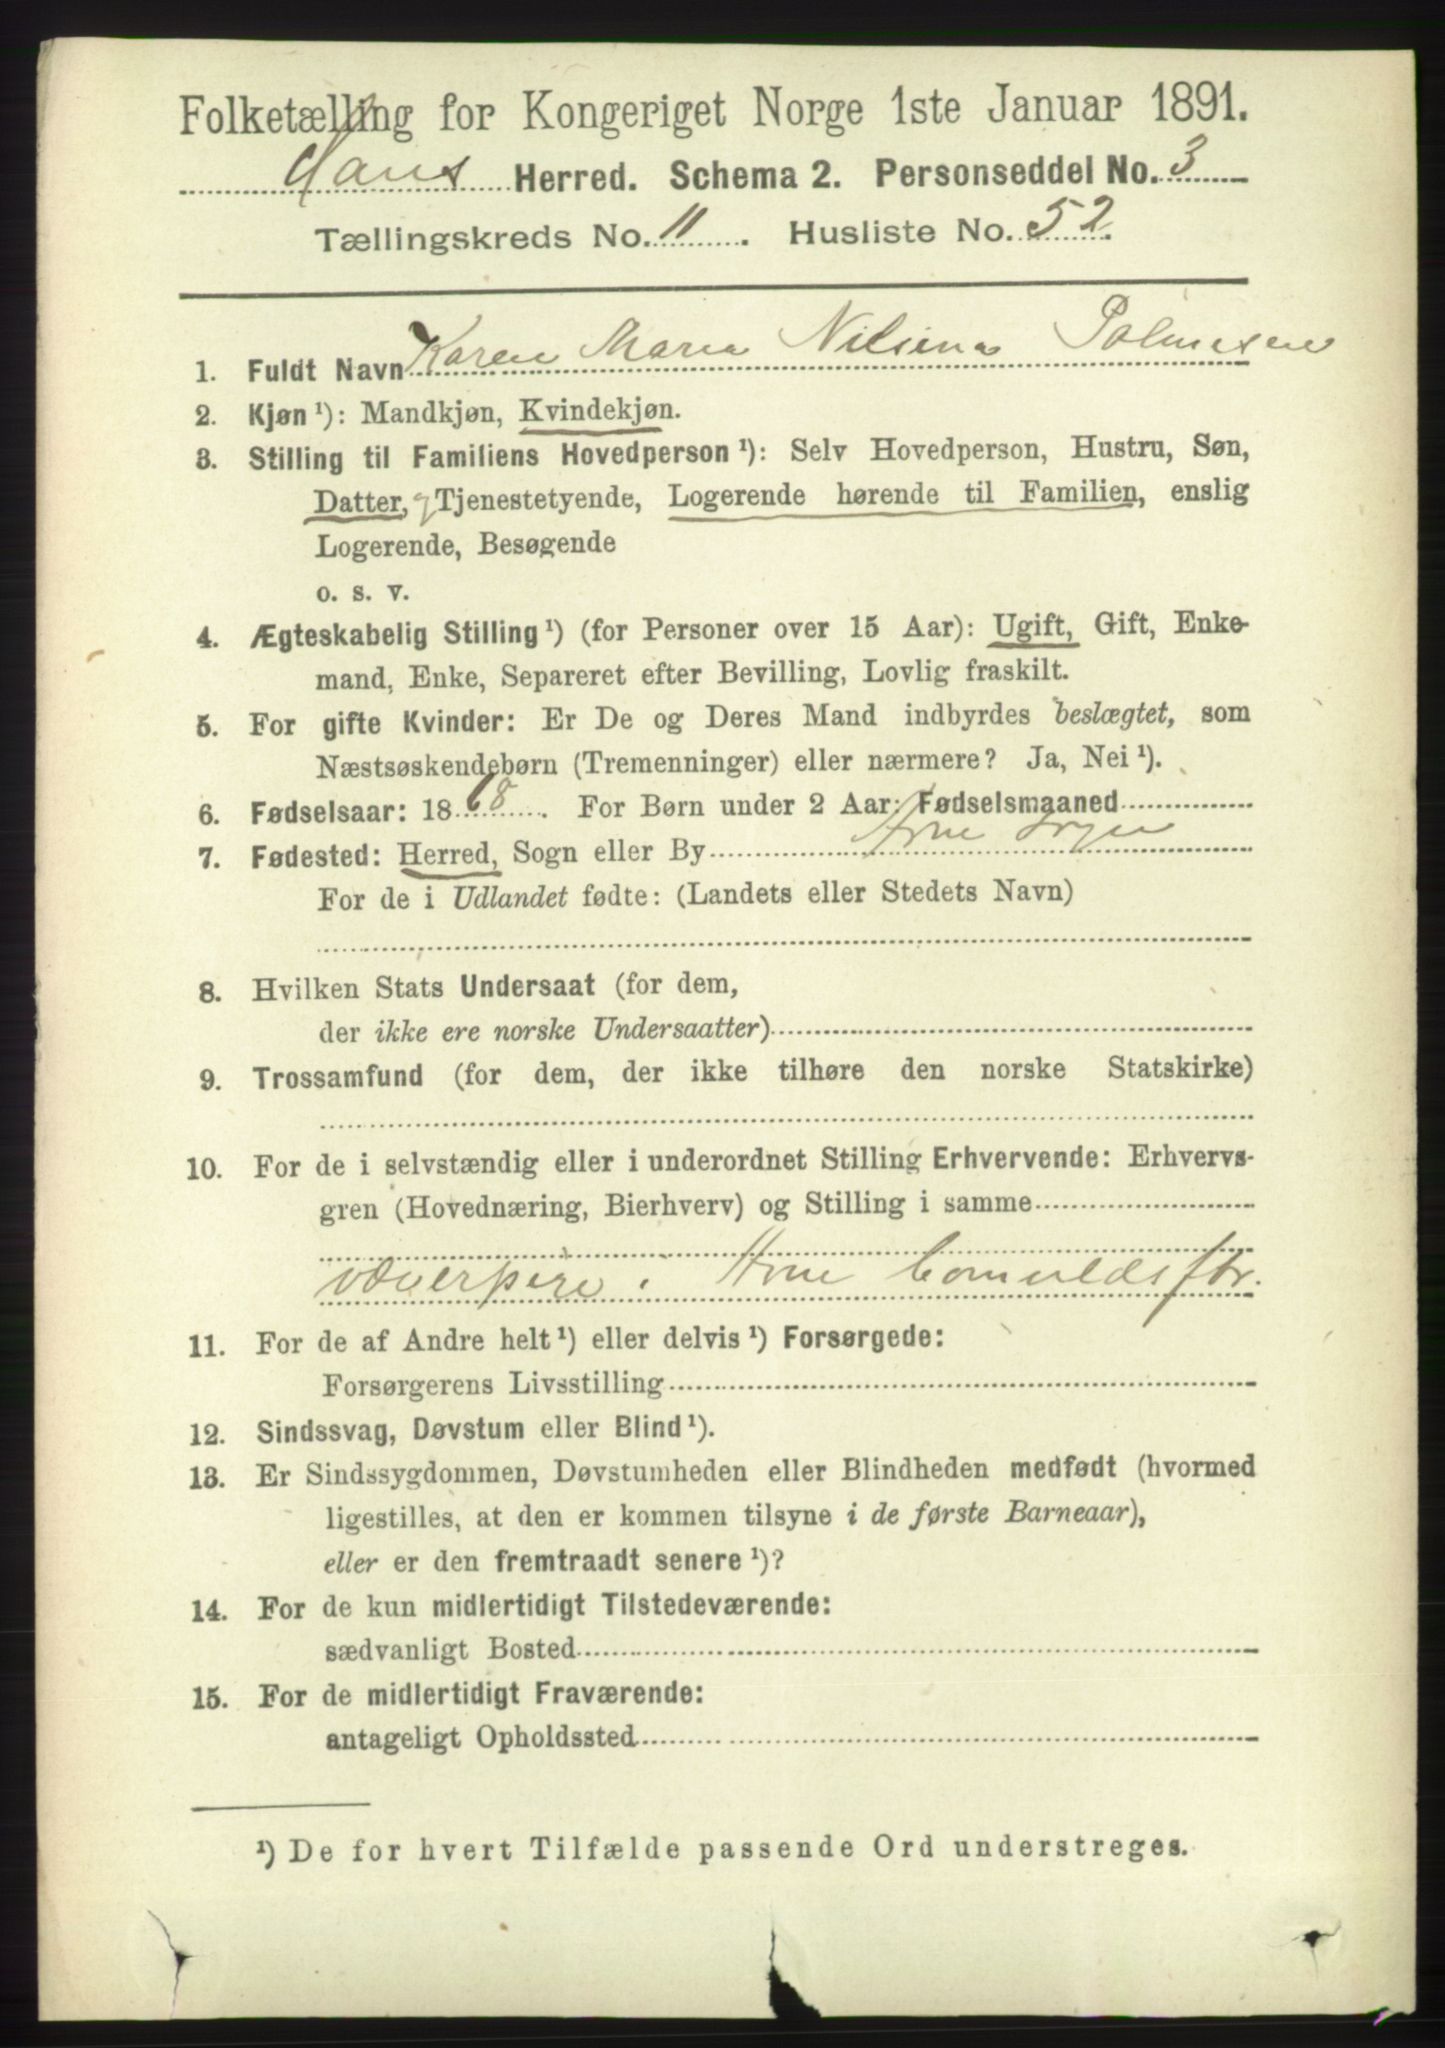 Folketælling for Kongeriget Norge 1ste Januar 1891.
Haus Herred. Schema 2. Personseddel No. 3
Tællingskreds No. 11. Husliste No. 52.
1. Fuldt Navn Karen Maria Nilsina Palmesen
2. Kjøn ¹): Mandkjøn, Kvindekjøn.
3. Stilling til Familiens Hovedperson ¹): Selv Hovedperson, Hustru, Søn,
Datter, Tjenestetyende, Logerende hørende til Familien, enslig
Logerende, Besøgende
o. s. v.
4. Ægteskabelig Stilling ¹) (for Personer over 15 Aar): Ugift, Gift, Enke-
mand, Enke, Separeret efter Bevilling, Lovlig fraskilt.
5. For gifte Kvinder: Er De og Deres Mand indbyrdes beslægtet, som
Næstsøskendebørn (Tremenninger) eller nærmere? Ja, Nei ¹).
6. Fødselsaar: 1868. For Børn under 2 Aar: Fødselsmaaned
7. Fødested: Herred, Sogn eller By Arne
For de i Udlandet fødte: (Landets eller Stedets Navn)
8. Hvilken Stats Undersaat (for dem,
der ikke ere norske Undersaatter)
9. Trossamfund (for dem, der ikke tilhøre den norske Statskirke)
10. For de i selvstændig eller i underordnet Stilling Erhvervende: Erhvervs-
gren (Hovednæring, Bierhverv) og Stilling i samme
væverpige i Arne
11. For de af Andre helt ¹) eller delvis ¹) Forsørgede:
Forsørgerens Livsstilling
12. Sindssvag, Døvstum eller Blind ¹).
13. Er Sindssygdommen, Døvstumheden eller Blindheden medfødt (hvormed
ligestilles, at den er kommen tilsyne i de første Barneaar),
eller er den fremtraadt senere ¹)?
14. For de kun midlertidigt Tilstedeværende:
sædvanligt Bosted
15. For de midlertidigt Fraværende:
antageligt Opholdssted
¹) De for hvert Tilfælde passende Ord understreges.